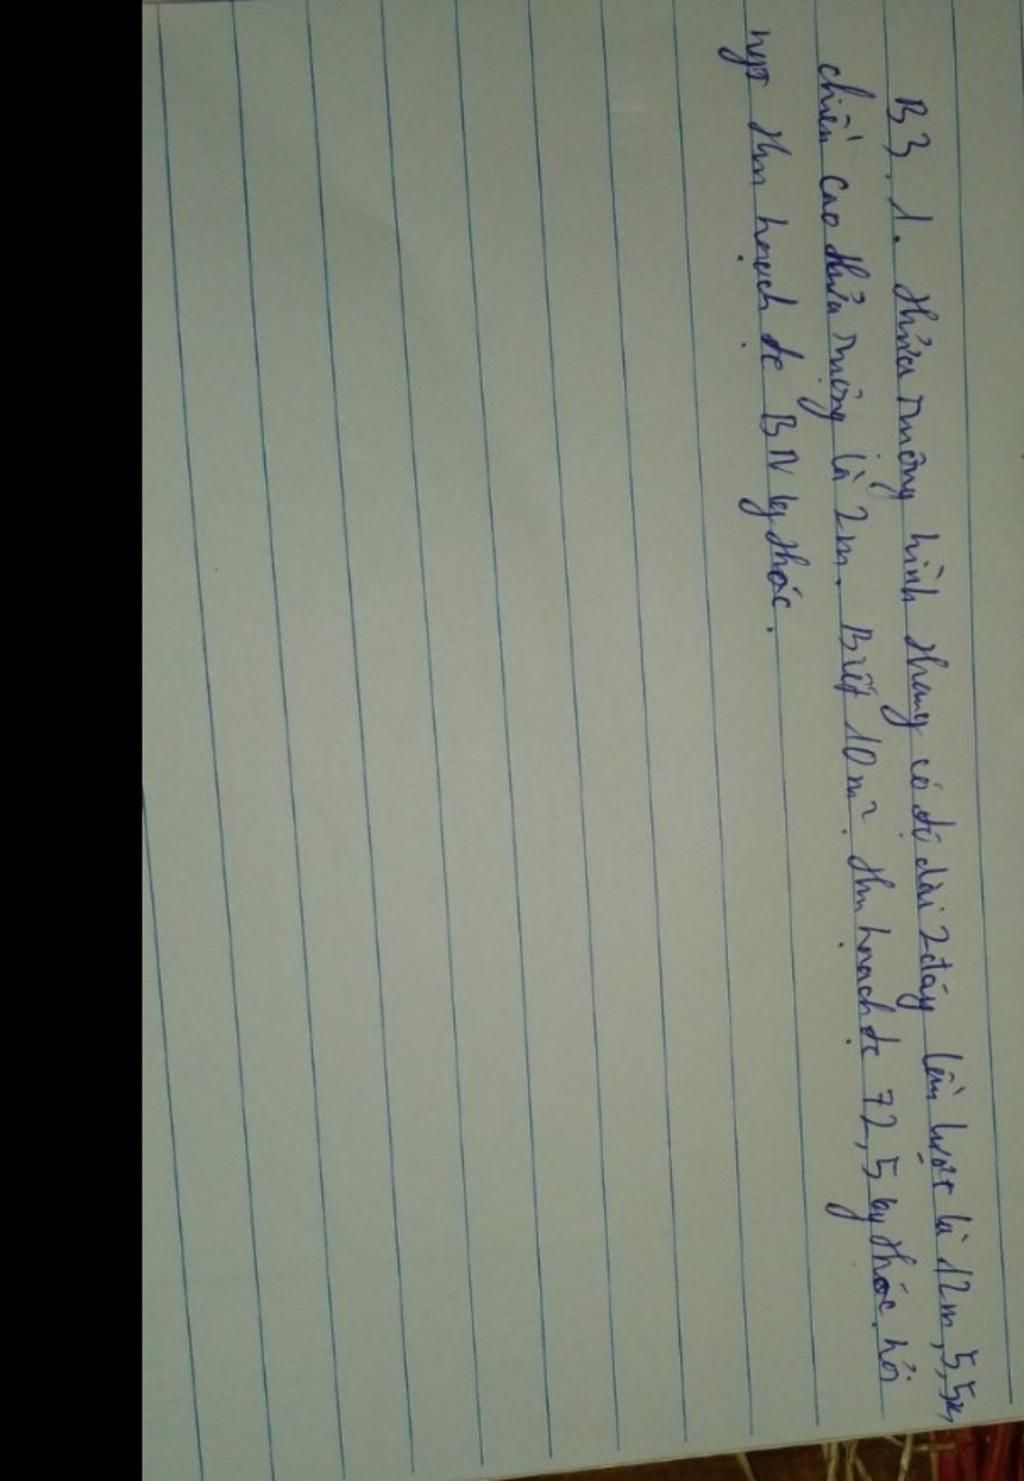 B3. 1. thửa ruộng hình thang có độ dài 2 đáy lần lượt là 12m, 5,5m,
chiều cao thửa ruộng là 2m. Biết 10m² thu hoạch đc 72,5 kg thóc. hỏi
ngt thu hoạch đc BN kg thóc.